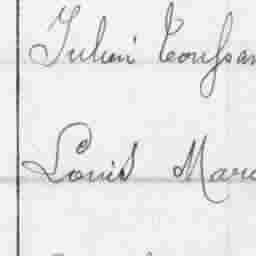 Julien Toussan
Louis Marc